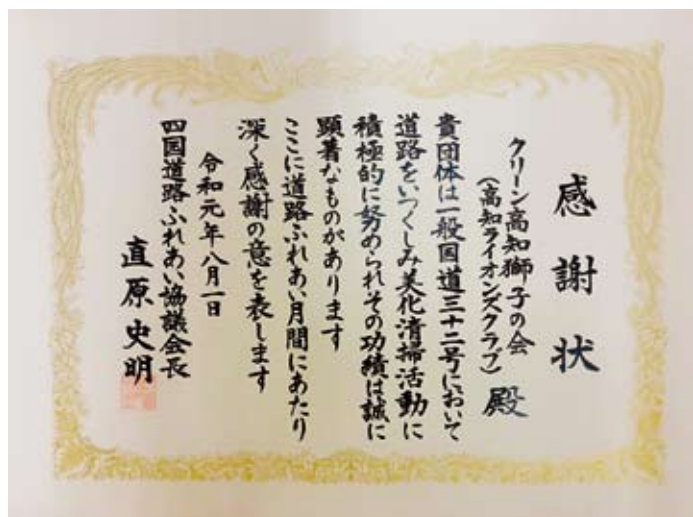 感謝状
クリーン高知獅子の会
(高知ライオンズクラブ) 殿
貴団体は一般国道三十二号において
道路をいつくしみ美化清掃活動に
積極的に努められその功績は誠に
顕著なものがあります
ここに道路ふれあい月間にあたり
深く感謝の意を表します
令和元年八月一日
四国道路ふれあい協議会長
直原史明